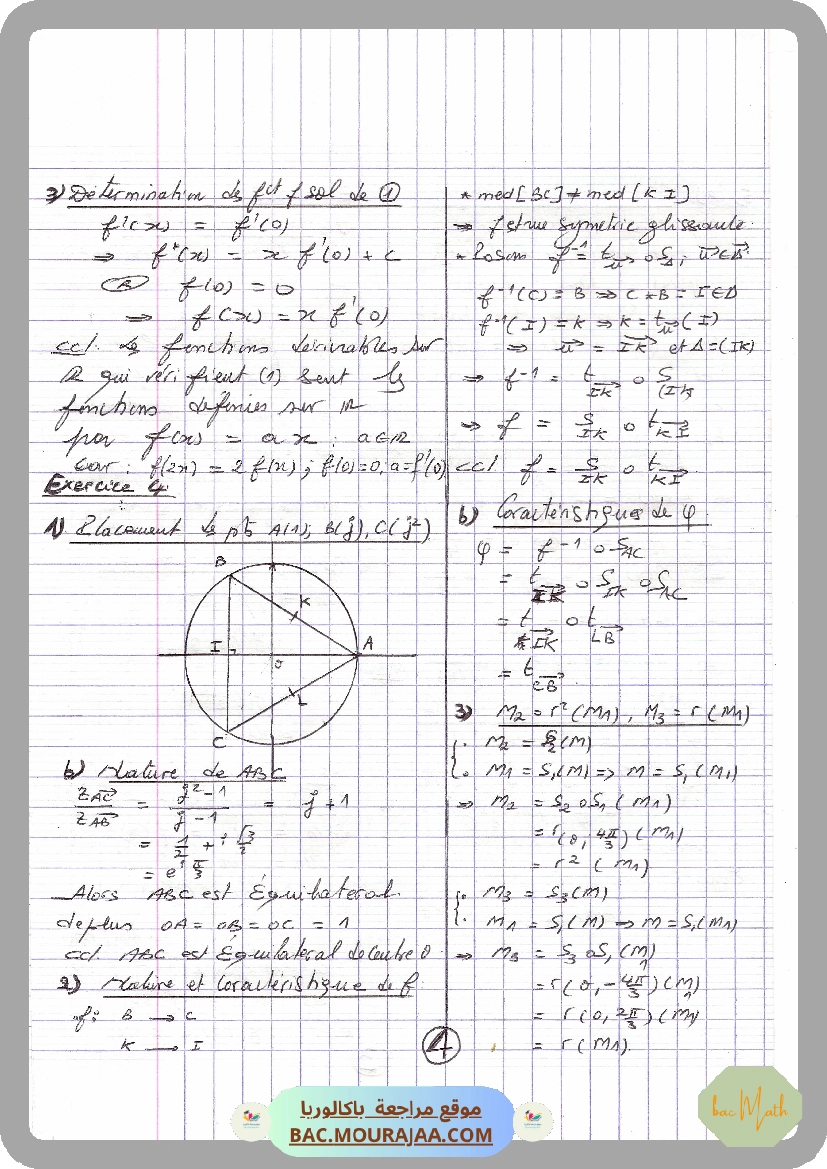 3) Détermination des fct f sol de ①
f'(x) = f'(0)
⇒ f(x) = x f'(0) + c
f(0) = 0
⇒ f(x) = x f'(0)
ccl. les fonctions dérivables sur
IR qui vérifient (1) sont les
fonctions définies sur IR
par f(x) = a x ; a∈IR
car : f(2x) = 2 f(x) ; f(0)=0, a=f'(0)
Exercice 4
1) Placement des pts A(1), B(j), C(j²)
B
K
I
A
O
L
C
b) Nature de ABC
z_AC / z_AB = (j²-1)/(j-1) = j+1
= 1/2 + i √3/2
= e^{i π/3}
Alors ABC est Équilatéral
de plus OA = OB = OC = 1
ccl. ABC est Équilatéral de centre O
2) Nature et Caractéristique de f
f: B → C
K → I
* med[BC] ≠ med[KI]
⇒ f est une symetrie glissante
* Posons f⁻¹ = t_u→ o S_Δ ; u→∈Δ→
f⁻¹(C) = B ⇒ C*B = I∈Δ
f⁻¹(I) = K ⇒ K = t_u→(I)
⇒ u→ = IK→ et Δ = (IK)
⇒ f⁻¹ = t_IK→ o S_(IK)
⇒ f = S_IK o t_KI→
ccl f = S_IK o t_KI→
b) Caractéristiques de φ
φ = f⁻¹ o S_AC
= t_IK→ o S_IK o S_AC
= t_IK→ o t_LB→
= t_CB→
3) M2 = r²(M1), M3 = r(M1)
{. M2 = S2(M)
. M1 = S1(M) => M = S1(M1)
⇒ M2 = S2 o S1 (M1)
= r(O, 4π/3)(M1)
= r² (M1)
{. M3 = S3(M)
. M1 = S1(M) ⇒ M = S1(M1)
⇒ M3 = S3 o S1 (M1)
= r(O, -4π/3)(M1)
= r(O, 2π/3)(M1)
= r(M1)
4
موقع مراجعة باكالوريا
BAC.MOURAJAA.COM
bac Math